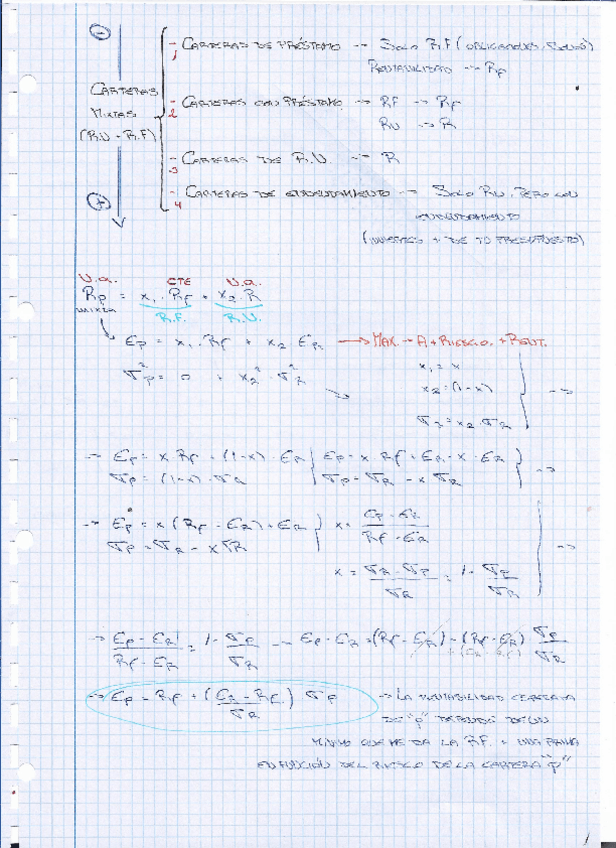 ⊖
1 - CARTERAS DE PRÉSTAMO → SOLO R.F (OBLIGACIONES, BONOS)
RENTABILIDAD → RF
CARTERAS
MIXTAS
(R.V - R.F)
2 - CARTERAS CON PRÉSTAMO → RF → RF
RV → R
3 - CARTERAS DE R.V. → R
⊕
4 - CARTERAS DE ENDEUDAMIENTO → SOLO RV, PERO CON
ENDEUDAMIENTO
(INVIERTES + DE TU PRESUPUESTO)
V.a. CTE V.a.
Rp = x₁ · RF + x₂ · R
MIXTA R.F. R.V.
Ep = x₁ · RF + x₂ ER → MAX. → A + RIESGO, + RENT.
σ²p = 0 + x₂² · σ²R
x₁ = x
x₂ = (1-x)
σp = x₂ · σR
→ Ep = x · RF + (1-x) · ER } Ep = x · RF + ER - x · ER
σp = (1-x) · σR } σp = σR - x σR } →
→ Ep = x (RF - ER) + ER } x = (Ep - ER) / (RF - ER)
σp = σR - xσR
x = (σR - σp) / σR = 1 - σp / σR } →
→ (Ep - ER) / (RF - ER) = 1 - σp / σR → Ep - ER = (RF - ER) - (RF - ER) σp / σR
→ Ep = RF + ((ER - RF) / σR) σp → LA RENTABILIDAD CARTERA
DE "p" DEPENDE DE UN
MÍNIMO QUE ME DA LA RF + UNA PRIMA
EN FUNCIÓN DEL RIESGO DE LA CARTERA "p"
1